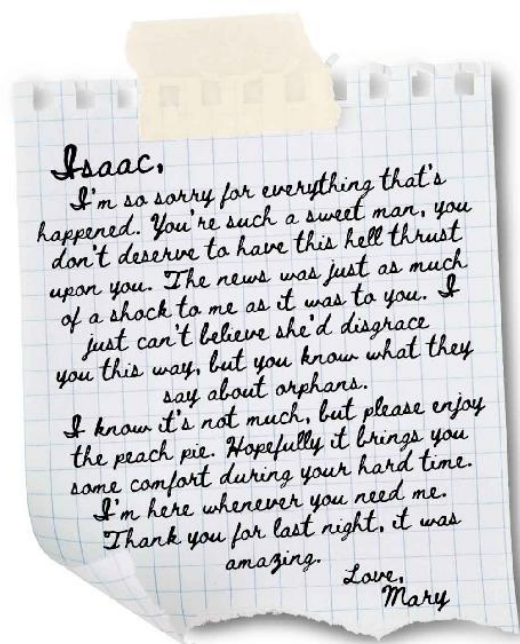 Isaac,
I'm so sorry for everything that's
happened. You're such a sweet man, you
don't deserve to have this hell thrust
upon you. The news was just as much
of a shock to me as it was to you. I
just can't believe she'd disgrace
you this way, but you know what they
say about orphans.
I know it's not much, but please enjoy
the peach pie. Hopefully it brings you
some comfort during your hard time.
I'm here whenever you need me.
Thank you for last night, it was
amazing.
Love,
Mary